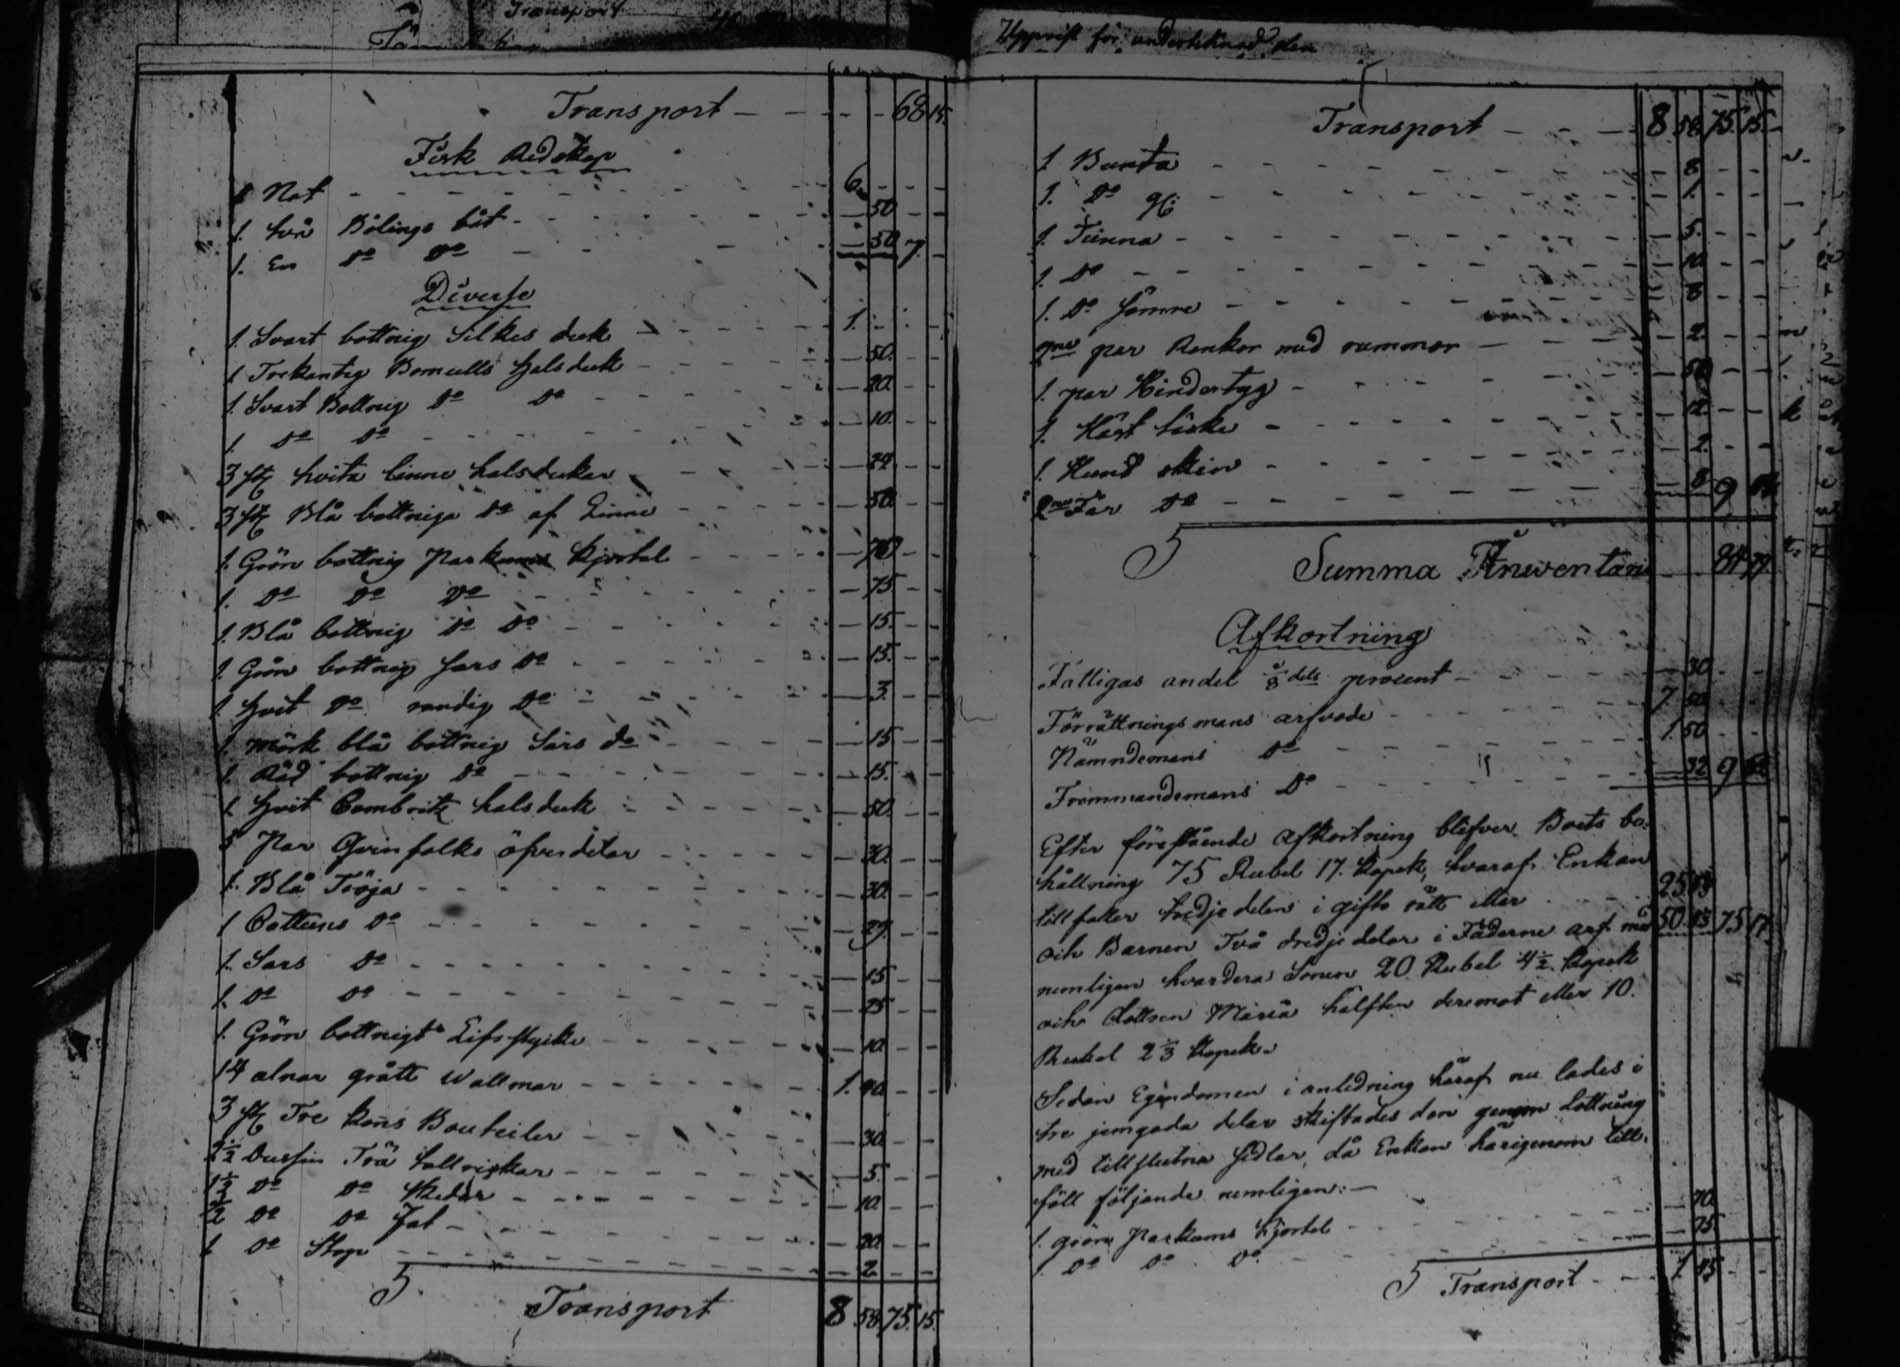 Transport
Uppvist för undertecknad den
Transport - - - - 68 15.
Fisk Redskap
1 Not - - - 6 - - -
1. två Bölings båt - - - 50 - -
1. En Do Do - - - 50 7. -
Diverse
1. Svart bottnig Silkes duk - - - 1. - - -
1 Trekantig Bomulls halsduk - - - 50. - -
1. Svart Bottnig Do Do - - - 20. - -
1. Do Do - - - 10. - -
3 st hvita linne halsdukar - - - 22 - -
3 st Blå bottniga Do af Linne - - - 50. - -
1. Grön bottnig Parkums Kjortel - - - 70 - -
1. Do Do Do - - - 75 - -
1. Blå bottnig Do Do - - - 15. - -
1. Grön bottnig Sars Do - - - 15. - -
1. Hvit Do randig Do - - - 3. - -
1. Mörk blå bottnig Sars do - - - 15 - -
1. Röd bottnig Do - - - 15. - -
1. Hvit Cambritz halsduk - - - 50. - -
Par Qvinfolks - - - 30. - -
1. Blå Tröja - - - 30. - -
1 Cattuns Do - - - 27. - -
1. Sars Do - - - 15 - -
1. Do Do - - - 25 - -
1. Grön bottnigt Lifstycke - - - 10. - -
14 alnar grått Wallmar - - - 1. 40. - -
3 st Tre kans Bouteiler - - - 30. - -
2½ Dussin Trä tallrickar - - - 5. - -
1½ Do Do Skedar - - - 10. - -
½ Do Do Fat - - - 20. - -
1 Do Stop - - - 2 - -
Transport 8 58. 75. 15.
Transport - - - 8 58. 75. 15.
1. Bunta - - - 8 - -
1. Do - - - 1. - -
1. Tunna - - - 5. - -
1. Do - - - 10. - -
1. Do Sämre - - - 8 - -
2ne par Rankor med rammor - - - 2 - -
1. par Hindertyg - - - 50 - -
1. Häst täcke - - - 12 - -
1. Hund skin - - - 2. - -
2ne Får Do - - - 8 9
Summa Inventarii - - 84 79.
Afkortning
Fattigas andel dels procent - - - 30 - -
Förrättningsmans arfvode - - - 7 50 - -
Nämndemans Do - - - 1 50 - -
Do - - - 32 9 62
Efter förestående Afkortning blifver Boets be-
hållning 75 Rubel 17. Kopek, hvaraf Enkan
tillfaller tredjedelen i gifto rätt eller - - 25
och Barnen Två tredjedelar i Fäderne arf med 50. 75 17.
nemligen hvardera Sonen 20 Rubel 4½ Kopek
och Dottren Maria hälften deremot eller 10.
Rubel 2⅓ Kopek.
Sedan Egendomen i anledning häraf nu lades i
tre jemgoda delar skiftades den genom Lottning
med tillslutna sedlar, då Enkan härigenom till-
föll följande nemligen:-
1. grön Parkums Kjortel - - - 70.
1. Do Do Do - - - 75.
Transport - - - 1 45 - -